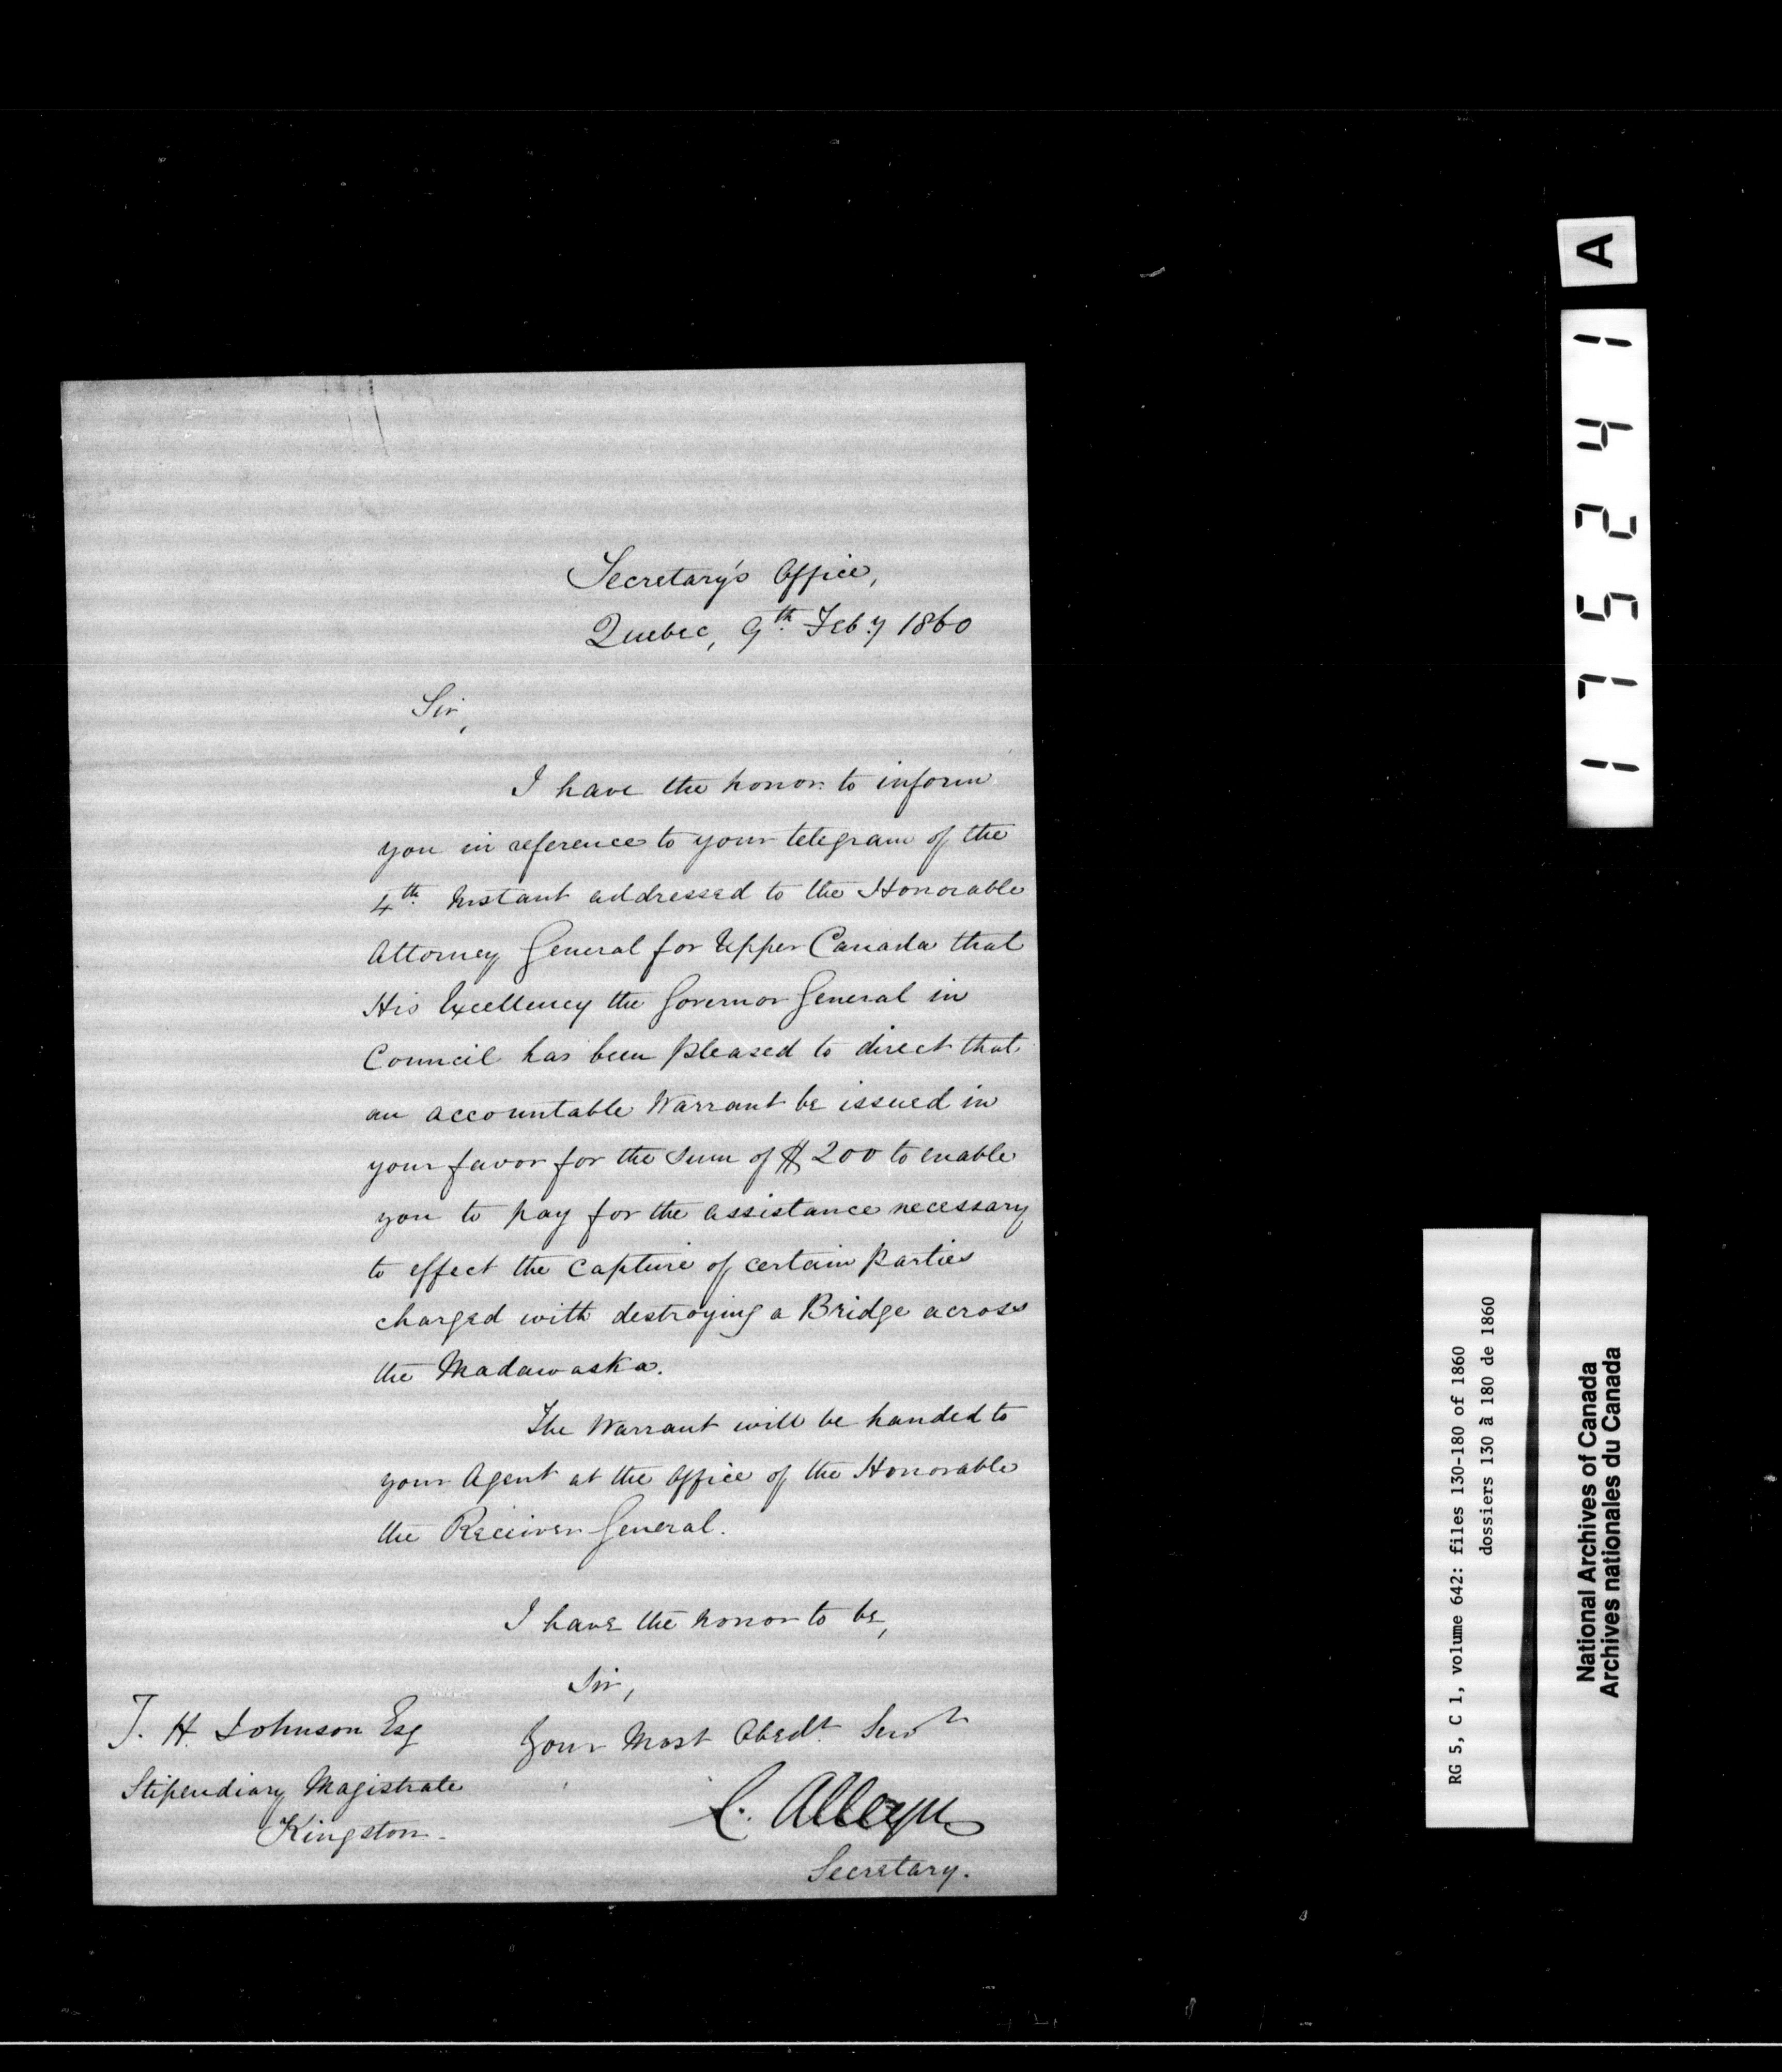 Secretary's Office,
Quebec, 9th Feb:y 1860
Sir,
I have the honor to inform
you in reference to your telegram of the
4th Instant addressed to the Honorable
Attorney General for Upper Canada that
His Excellency the Governor General in
Council has been pleased to direct that
an accountable Warrant be issued in
your favor for the Sum of $200 to enable
you to pay for the assistance necessary
to effect the Capture of certain parties
charged with destroying a Bridge across
the Madawaska.
The Warrant will be handed to
your Agent at the Office of the Honorable
the Receiver General.
I have the honor to be,
Sir,
Your Most Obedt. Servt
C. Alleyn
Secretary.
T. H. Johnson Esq
Stipendiary Magistrate
Kingston.
175241 A
RG 5, C 1, volume 642: files 130-180 of 1860
dossiers 130 à 180 de 1860
National Archives of Canada
Archives nationales du Canada